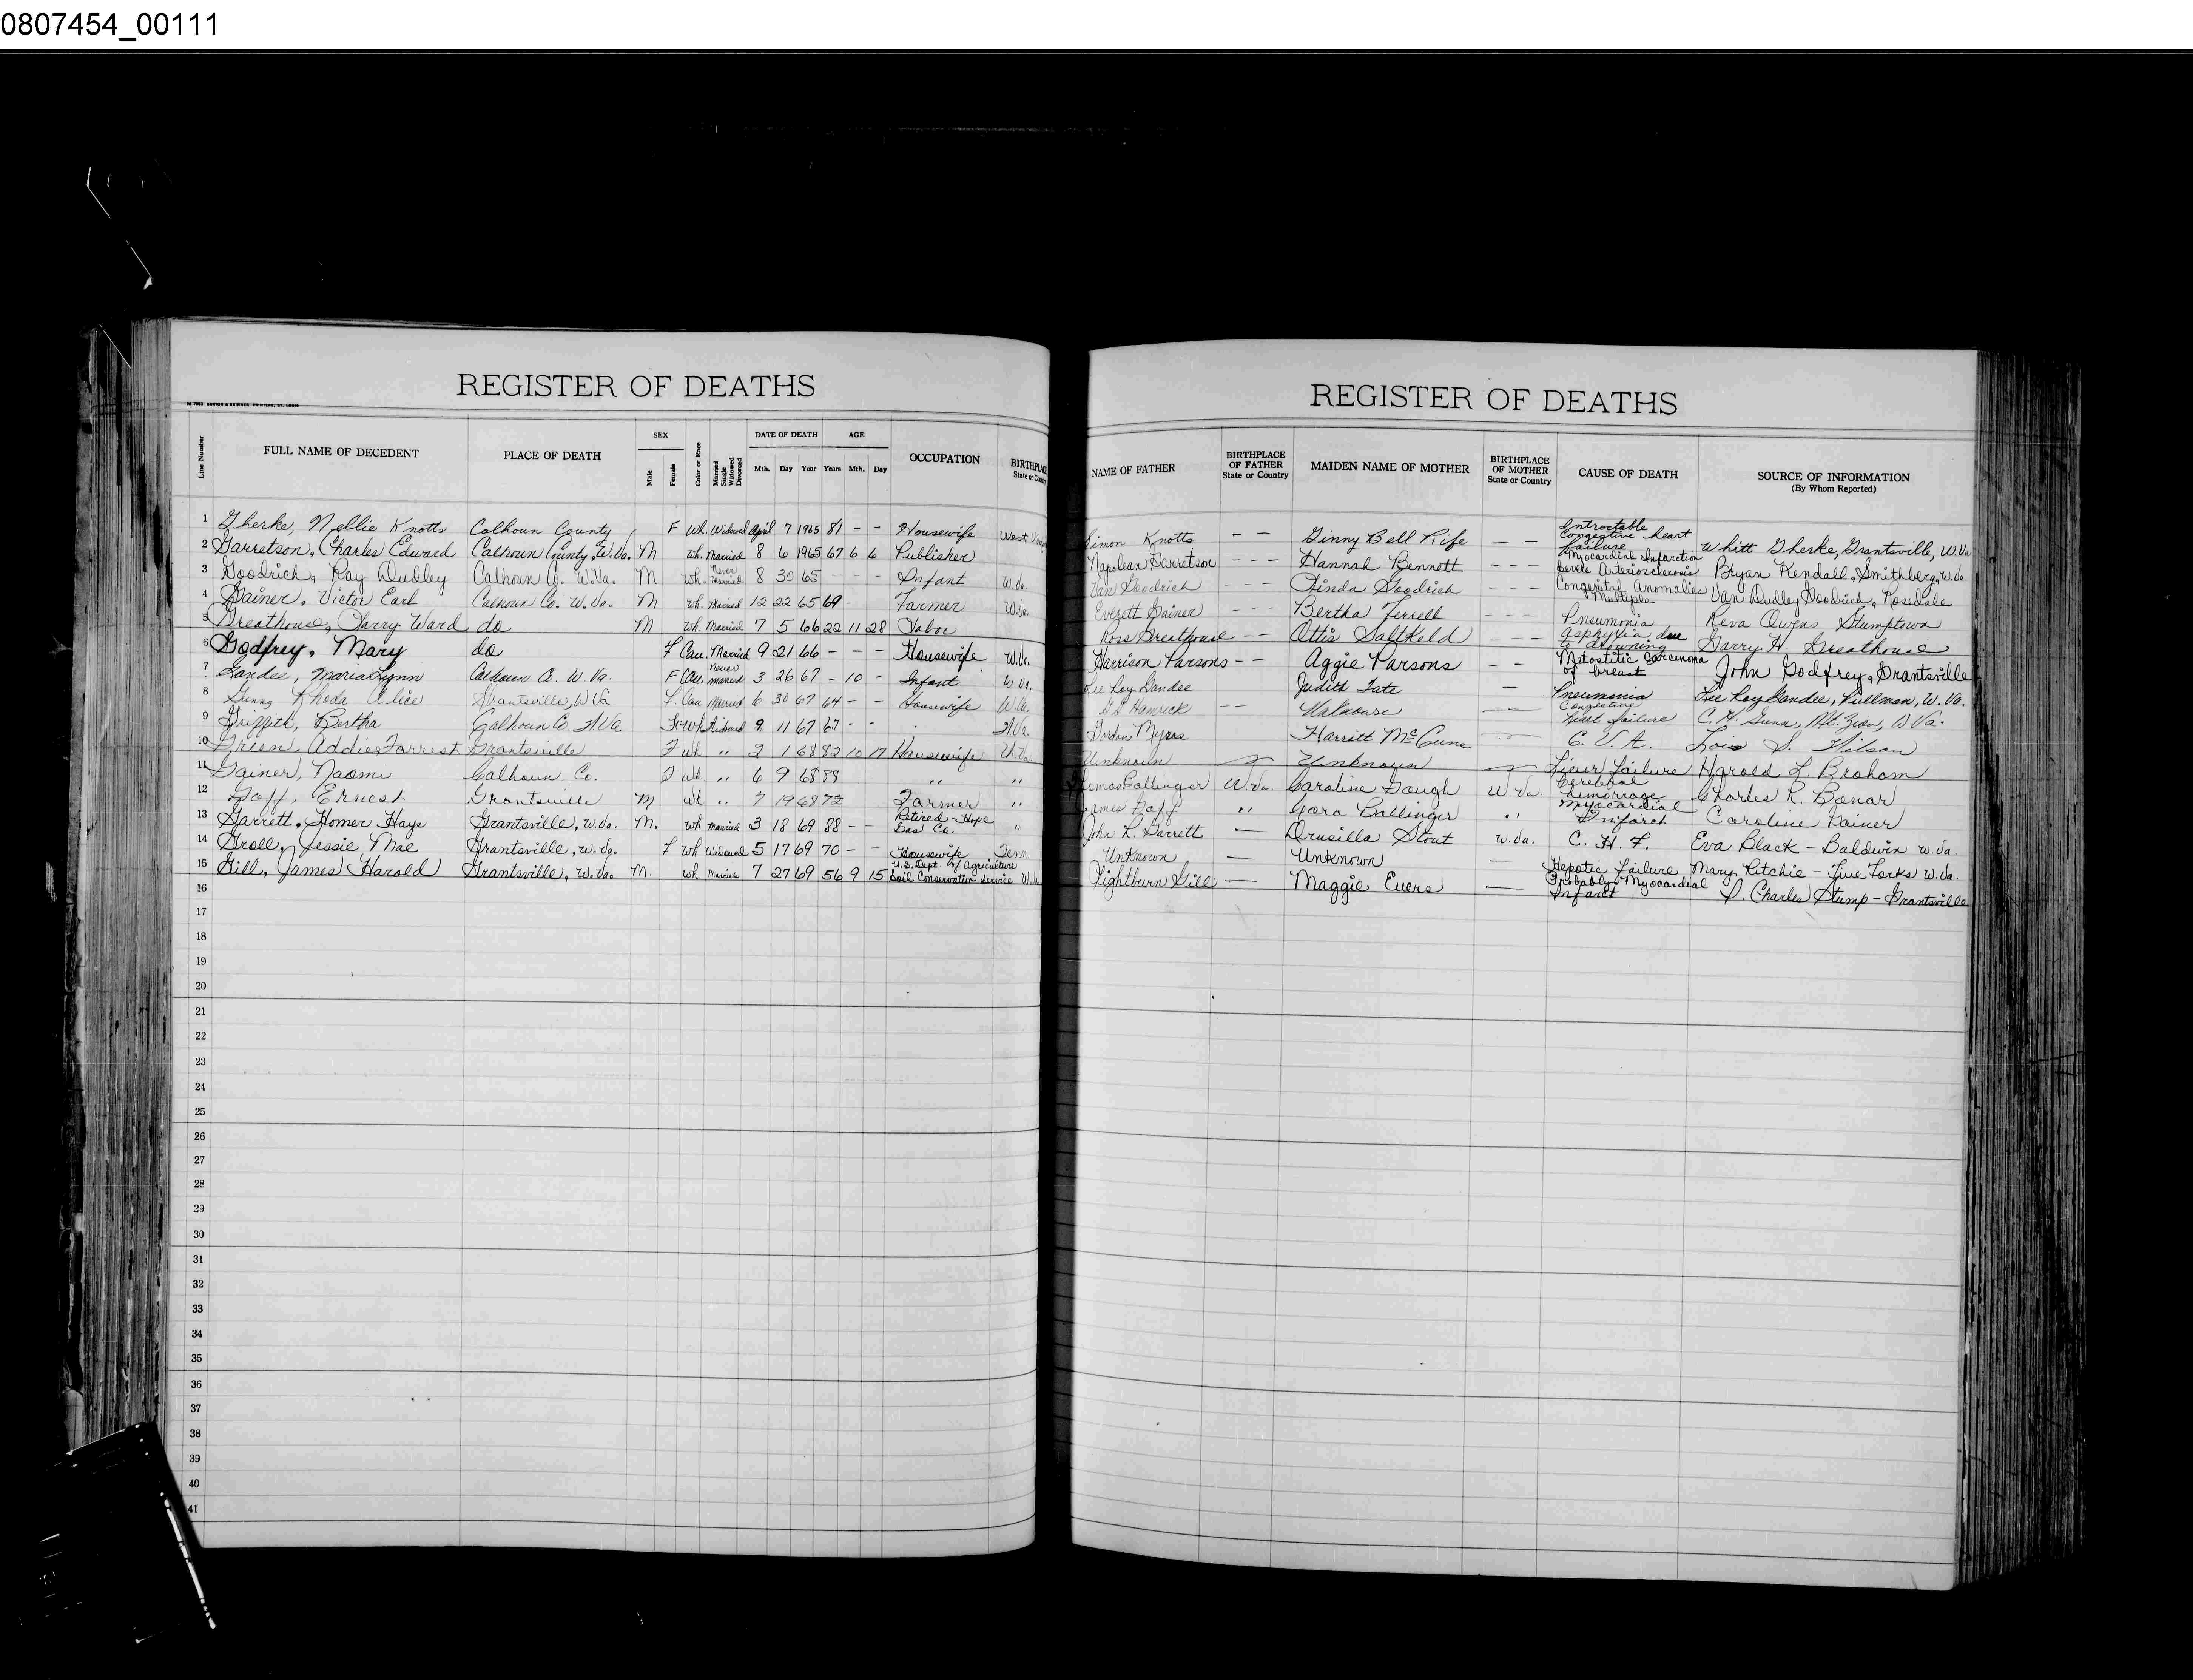 0807454_00111
REGISTER OF DEATHS
Line Number FULL NAME OF DECEDENT PLACE OF DEATH SEX Male Female Color or Race Married Single Widowed Divorced DATE OF DEATH Mth. Day Year AGE Years Mth. Day OCCUPATION BIRTHPLACE State or Country
1 Gherke, Nellie Knotts Calhoun County F Wh. Widowed April 7 1965 81 - - Housewife West
2 Garretson, Charles Edward Calhoun County, W.Va. M Wh. Married 8 6 1965 67 6 6 Publisher
3 Goodrich, Ray Dudley Calhoun Co. W.Va. M Wh. Never Married 8 30 65 - - - Infant W.Va.
4 Gainer, Victor Earl Calhoun Co. W.Va. M Wh. Married 12 22 65 69 - Farmer W.Va.
5 Greathouse, Larry Ward do M Wh. Married 7 5 66 22 11 28 Labor
6 Godfrey, Mary do F Cau. Married 9 21 66 - - - Housewife W.Va.
7 Gandee, Maria Lynn Calhoun Co. W. Va. F Cau. never married 3 26 67 - 10 - Infant W.Va.
8 Gunn, Rheda Alice Grantsville, W Va F Cau Married 6 30 67 64 - - Housewife W.Va.
9 Griffith, Bertha Calhoun Co. W Va. F Wh Widowed 9 11 67 67 - - W.Va.
10 Green, Addie Forrest Grantsville F Wh " 2 1 68 82 10 17 Housewife W.Va
11 Gainer, Naomi Calhoun Co. F Wh " 6 9 68 88 " "
12 Goff, Ernest Grantsville M Wh " 7 19 68 72 Farmer "
13 Garrett, Homer Hays Grantsville, W.Va. M. Wh Married 3 18 69 88 - - Retired - Hope Gas Co. "
14 Groll, Jessie Mae Grantsville, W.Va. F Wh Widowed 5 17 69 70 - - Housewife Tenn.
15 Gill, James Harold Grantsville, W.Va. M. Wh. Married 7 27 69 56 9 15 U.S. Dept of Agriculture Soil Conservation Service W.Va
16
17
18
19
20
21
22
23
24
25
26
27
28
29
30
31
32
33
34
35
36
37
38
39
40
41
REGISTER OF DEATHS
NAME OF FATHER BIRTHPLACE OF FATHER State or Country MAIDEN NAME OF MOTHER BIRTHPLACE OF MOTHER State or Country CAUSE OF DEATH SOURCE OF INFORMATION (By Whom Reported)
Simon Knotts - - Ginny Bell Rife - - Intractable Congestive heart failure Whitt Gherke, Grantsville, W.Va
Napolean Garretson - - - Hannah Bennett - - - Myocardial Infarction Severe Arteriosclerosis Bryan Kendall, Smithberg, W.Va.
Van Goodrich - - - Linda Goodrich - - - Congenital Anomalies Multiple Van Dudley Goodrich, Rosedale
Everett Gainer - - - Bertha Ferrell - - - Pneumonia Reva Owens Stumptown
Ross Greathouse - - Ottis Saltkeld - - - asphyxia due to drowning Garry A. Greathouse
Harrison Parsons - - Aggie Parsons - - Metastitic Carcenoma of breast John Godfrey, Grantsville
Lee Roy Gandee Judith Tate - Pneumonia Lee Roy Gandee, Pullman, W. Va.
Hamrick - - Congestive heart failure C. H. Gunn, Mt. Zion, W Va.
Gordon Myers Harriett McCune C. V. A. Lois S. Wilson
Unknown Unknown Liver Failure Harold L. Broham
Thomas Ballinger W.Va. Caroline Gough W.Va. Cerebral hemorrage Charles R. Bonar
James Goff " Cora Ballinger " Myocardial Infarct Caroline Gainer
John R. Garrett - Drusilla Stout W.Va. C. H. F. Eva Black - Baldwin W.Va.
Unknown - Unknown - Hepotic Failure Mary Ritchie - Five Forks W.Va.
Lightburn Gill - Maggie Evers - Probably Myocardial Infarct D. Charles Stump - Grantsville